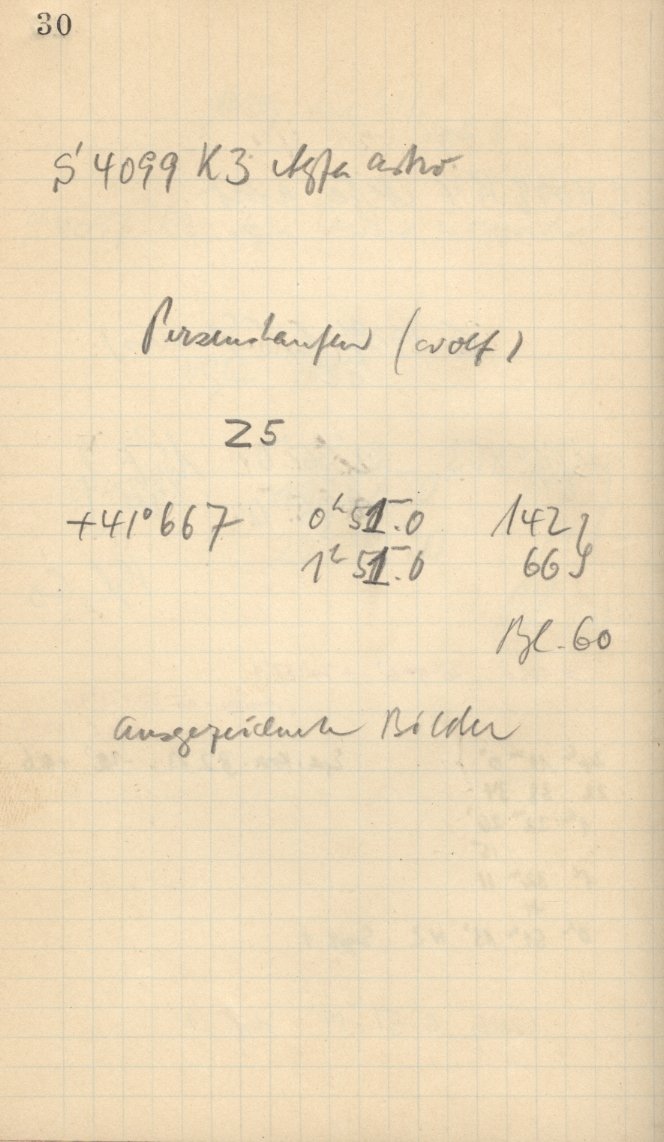 30
S 4099 K3 Agfa Astro
Perseushaufen (Wolf)
Z5
+41°667 0h 51.0 142
1h 51.0 66
Bl. 60
Ausgezeichnete Bilder